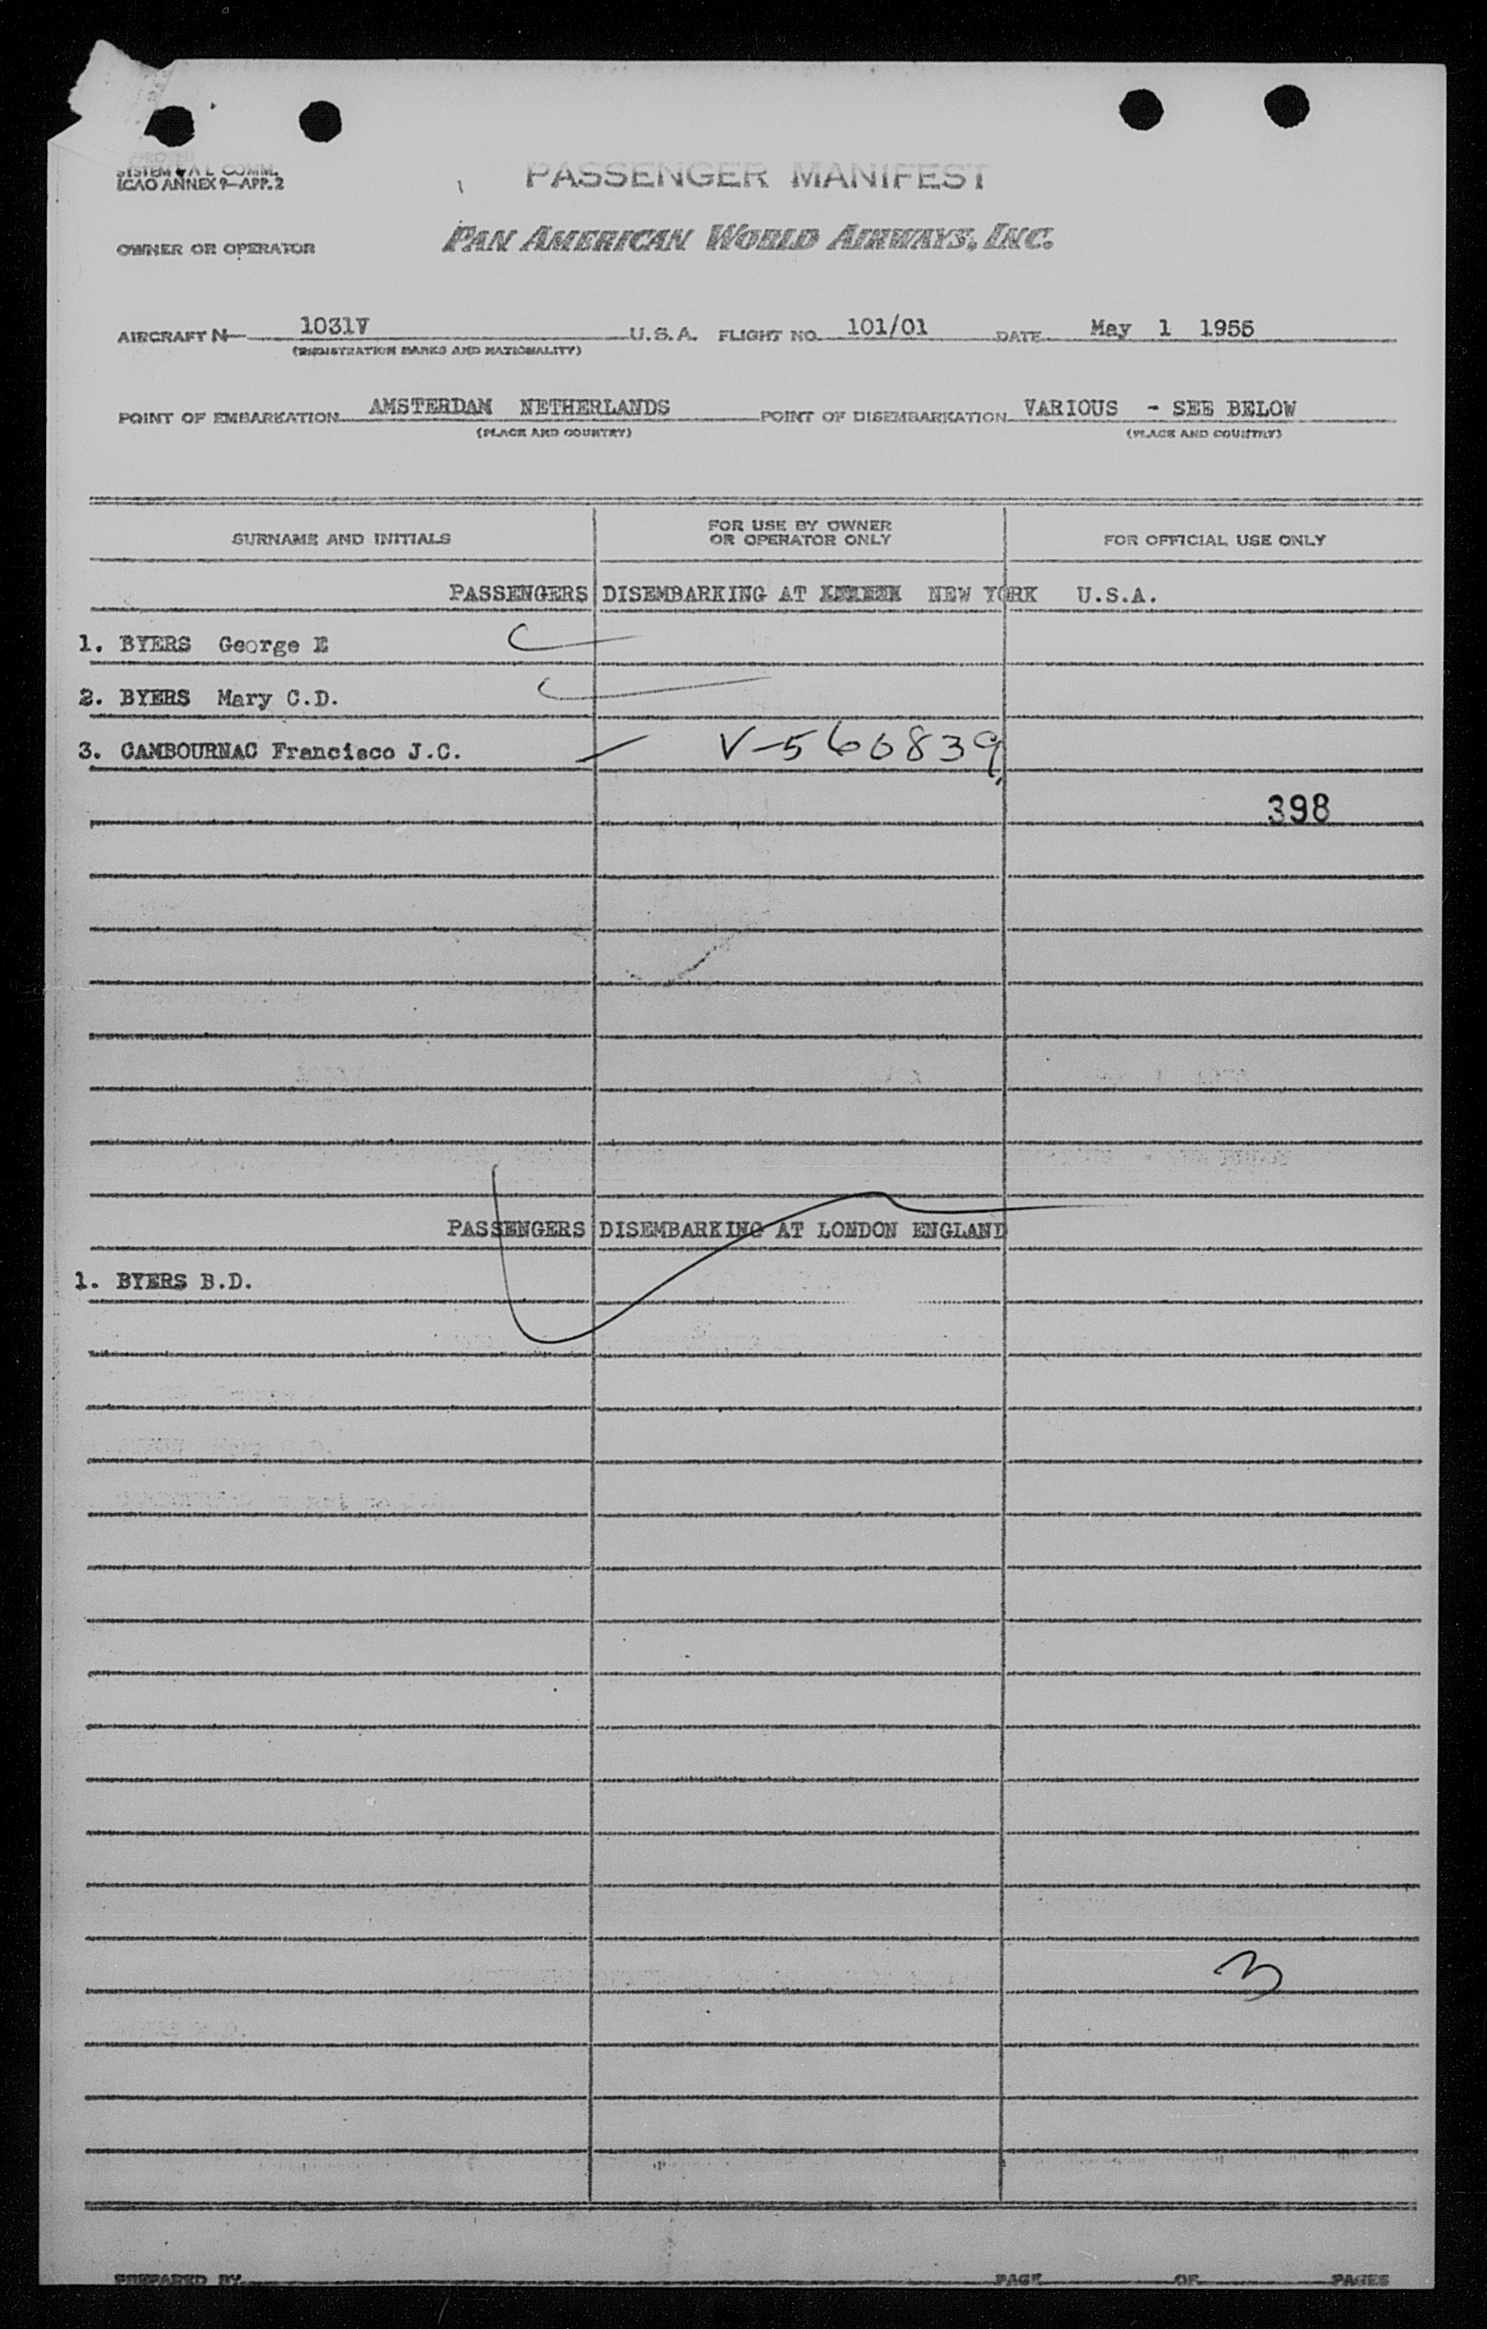 SYSTEM & A L COMM.
ICAO ANNEX 9—APP. 2
PASSENGER MANIFEST
OWNER OR OPERATOR PAN AMERICAN WORLD AIRWAYS, INC.
AIRCRAFT N 1031V U.S.A. FLIGHT NO. 101/01 DATE May 1 1955
(REGISTRATION MARKS AND NATIONALITY)
POINT OF EMBARKATION AMSTERDAM NETHERLANDS POINT OF DISEMBARKATION VARIOUS - SEE BELOW
(PLACE AND COUNTRY) (PLACE AND COUNTRY)
SURNAME AND INITIALS FOR USE BY OWNER OR OPERATOR ONLY FOR OFFICIAL USE ONLY
PASSENGERS DISEMBARKING AT NEW YORK U.S.A.
1. BYERS George E
2. BYERS Mary C.D.
3. CAMBOURNAC Francisco J.C. V-560839
398
PASSENGERS DISEMBARKING AT LONDON ENGLAND
1. BYERS B.D.
3
PREPARED BY PAGE OF PAGES